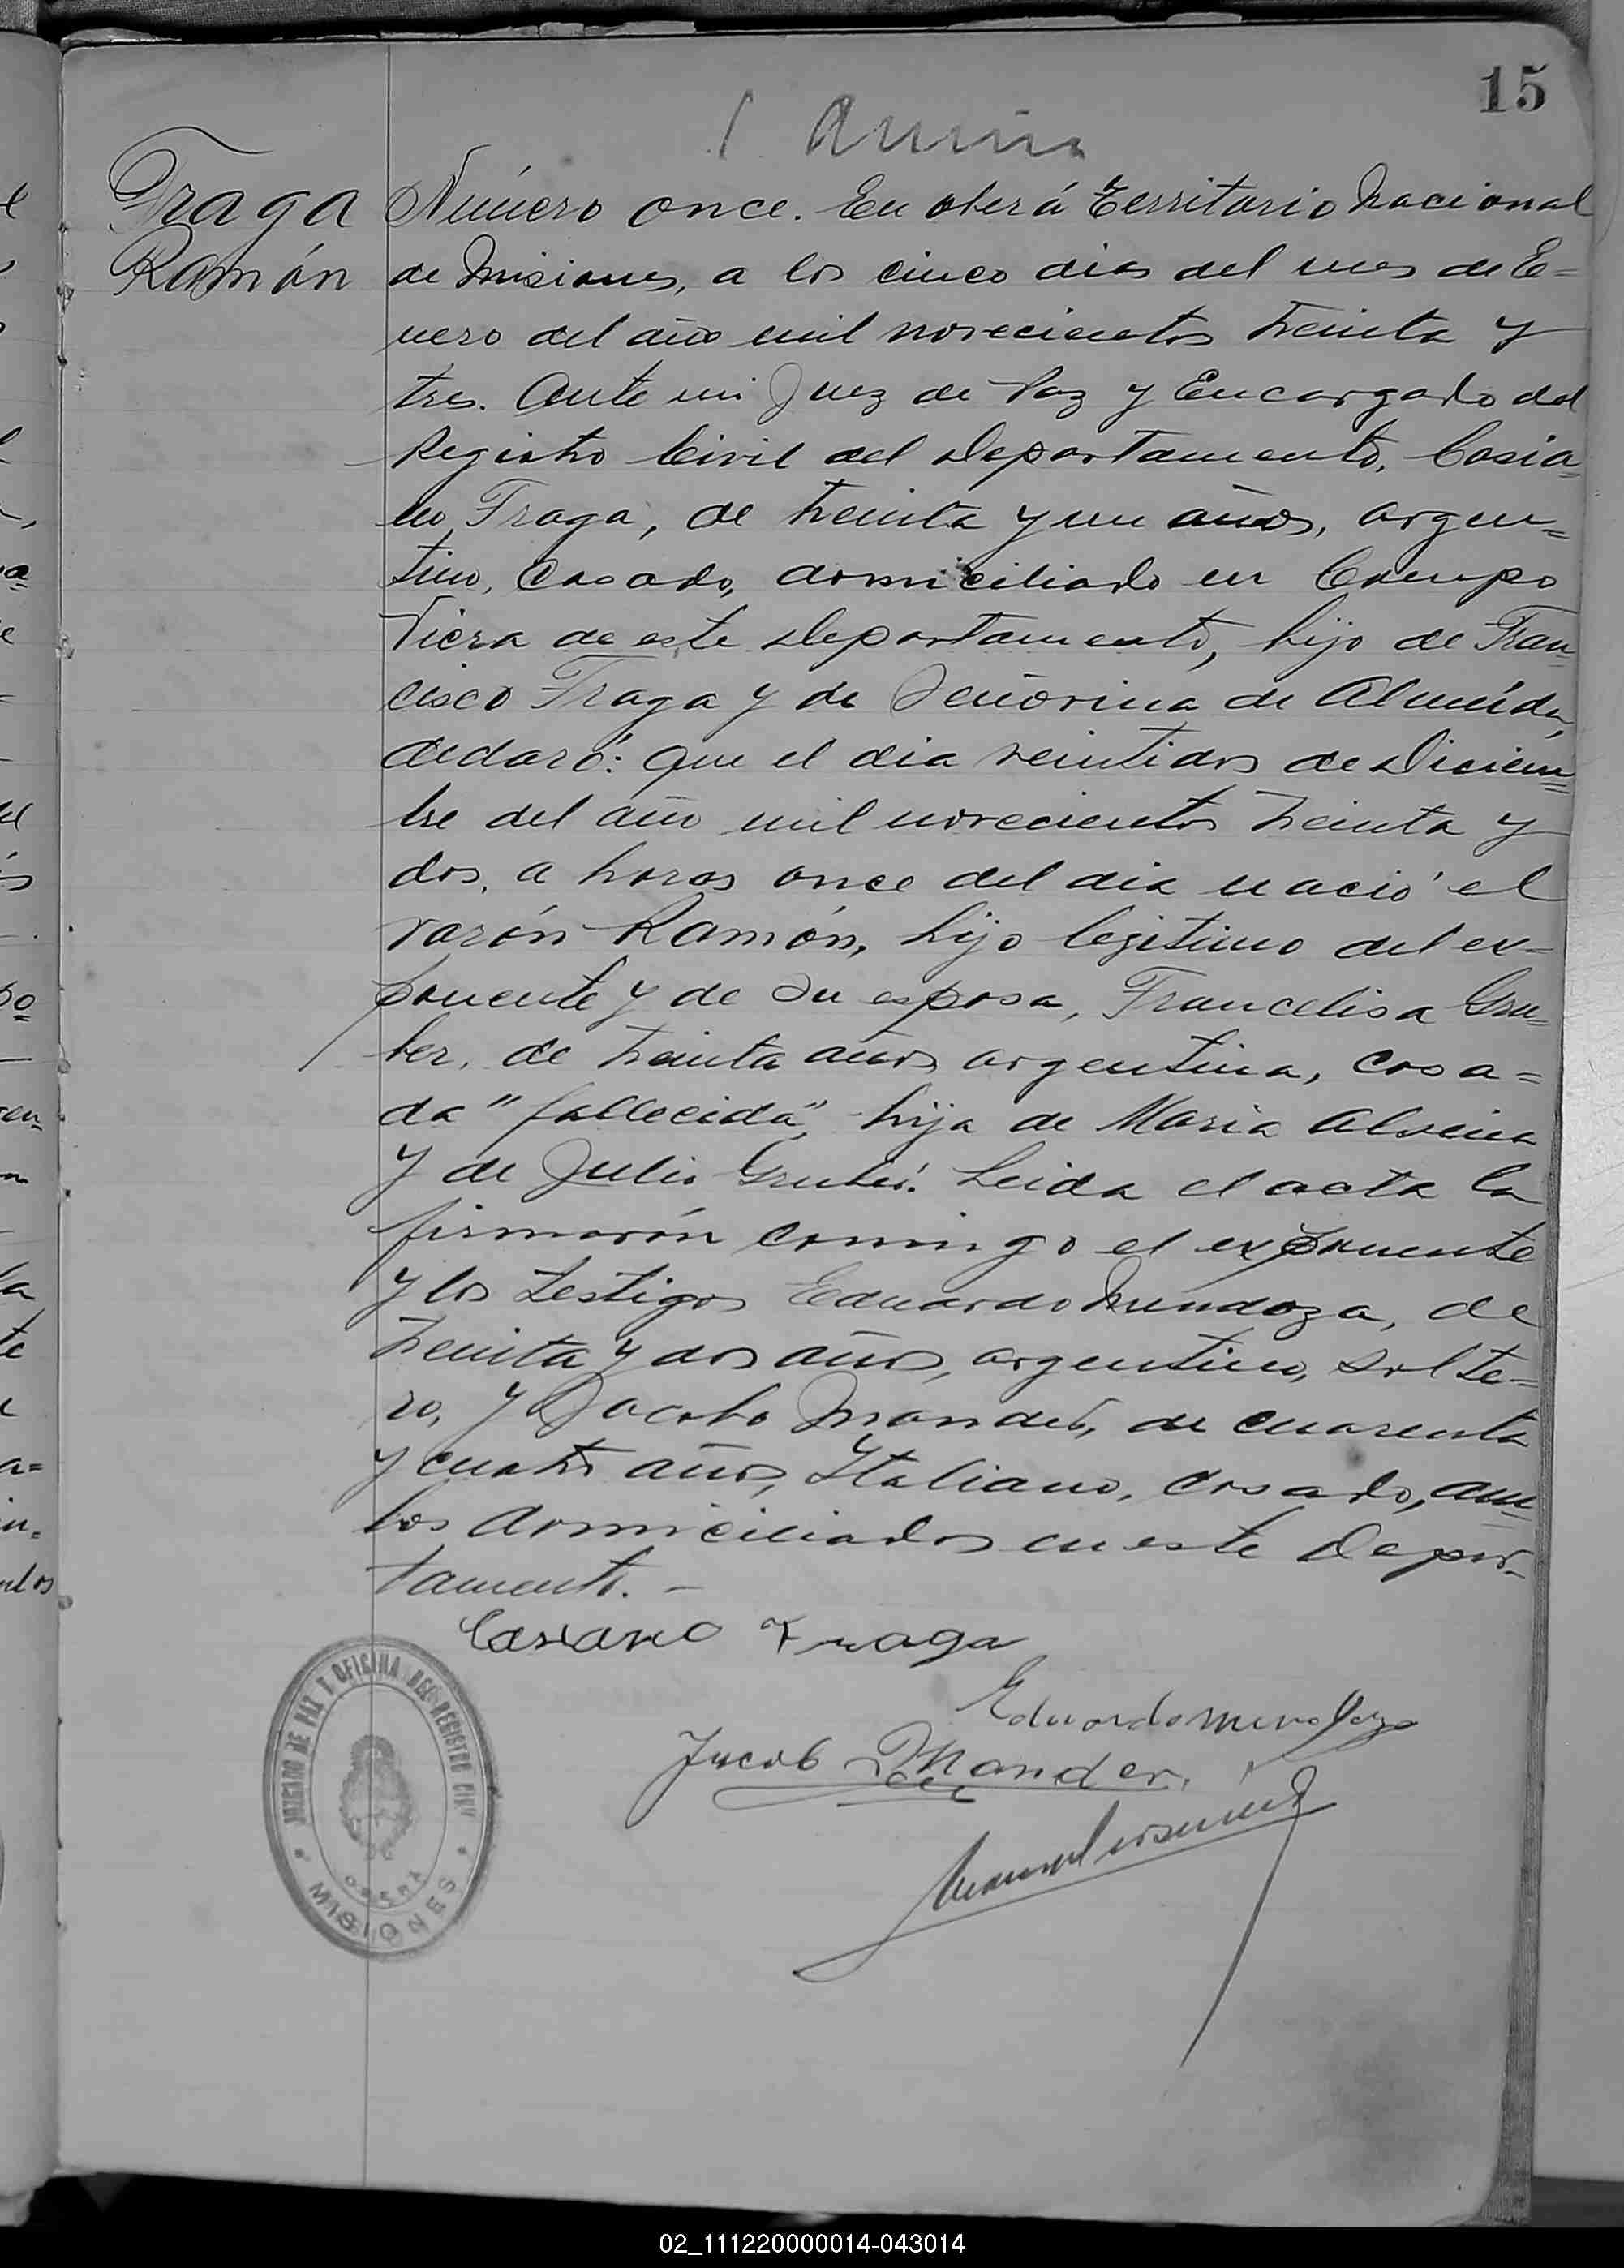 15
Fraga
Ramón
Número once. En oberá Territorio Nacional
de Misiones, a los cinco dias del mes de E=
nero del año mil novecientos treinta y
tres. Ante mi Juez de Paz y Encargado del
Registro Civil del Departamento, Casia=
no Fraga, de treinta y un años, argen=
tino, casado, domiciliado en Campo
Viera de este Departamento, hijo de Fran=
cisco Fraga y de Señorina de Almeida,
declaró: que el dia veintidos de Diciem=
bre del año mil novecientos treinta y
dos, a horas once del dia nació el
varón Ramón, hijo legitimo del ex=
ponente y de su esposa, Francelisa Gru=
ber, de treinta años argentina, casa=
da "fallecida", hija de Maria
y de Julio Leida el acta la
firmarón comingo el exponente
y los testigos Eduardo Mendoza, de
treinta y dos años, argentino, solte=
ro, y Jacobo de cuarenta
y cuatro años, Italiano, casado, am=
bos domiciliados en este Depar=
tamento. —
Casiano Fraga
Eduardo Mendoza
Jacob Mander
JUZGADO DE PAZ Y OFICINA DEL REGISTRO CIVIL
OBERÁ
MISIONES
02_111220000014-043014